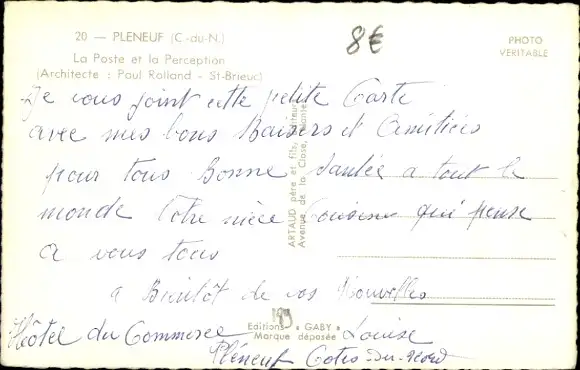 20 — PLENEUF (C-du-N.)
La Poste et la Perception
(Architecte : Paul Rolland - St-Brieuc)
8€
PHOTO
VERITABLE
Je vous joint cette petite Carte
avec mes bons Baisers et Amitiées
pour tous Bonne Santée a tout le
monde Votre nièce Cousine qui pense
a vous tous
a Bientôt de vos Nouvelles
Louise
Hôtel du Commerce
Pléneuf Cotes-du-Nord
ARTAUD père et fils, éditeurs
Avenue de la Close, Nantes
Editions « GABY »
Marque déposée